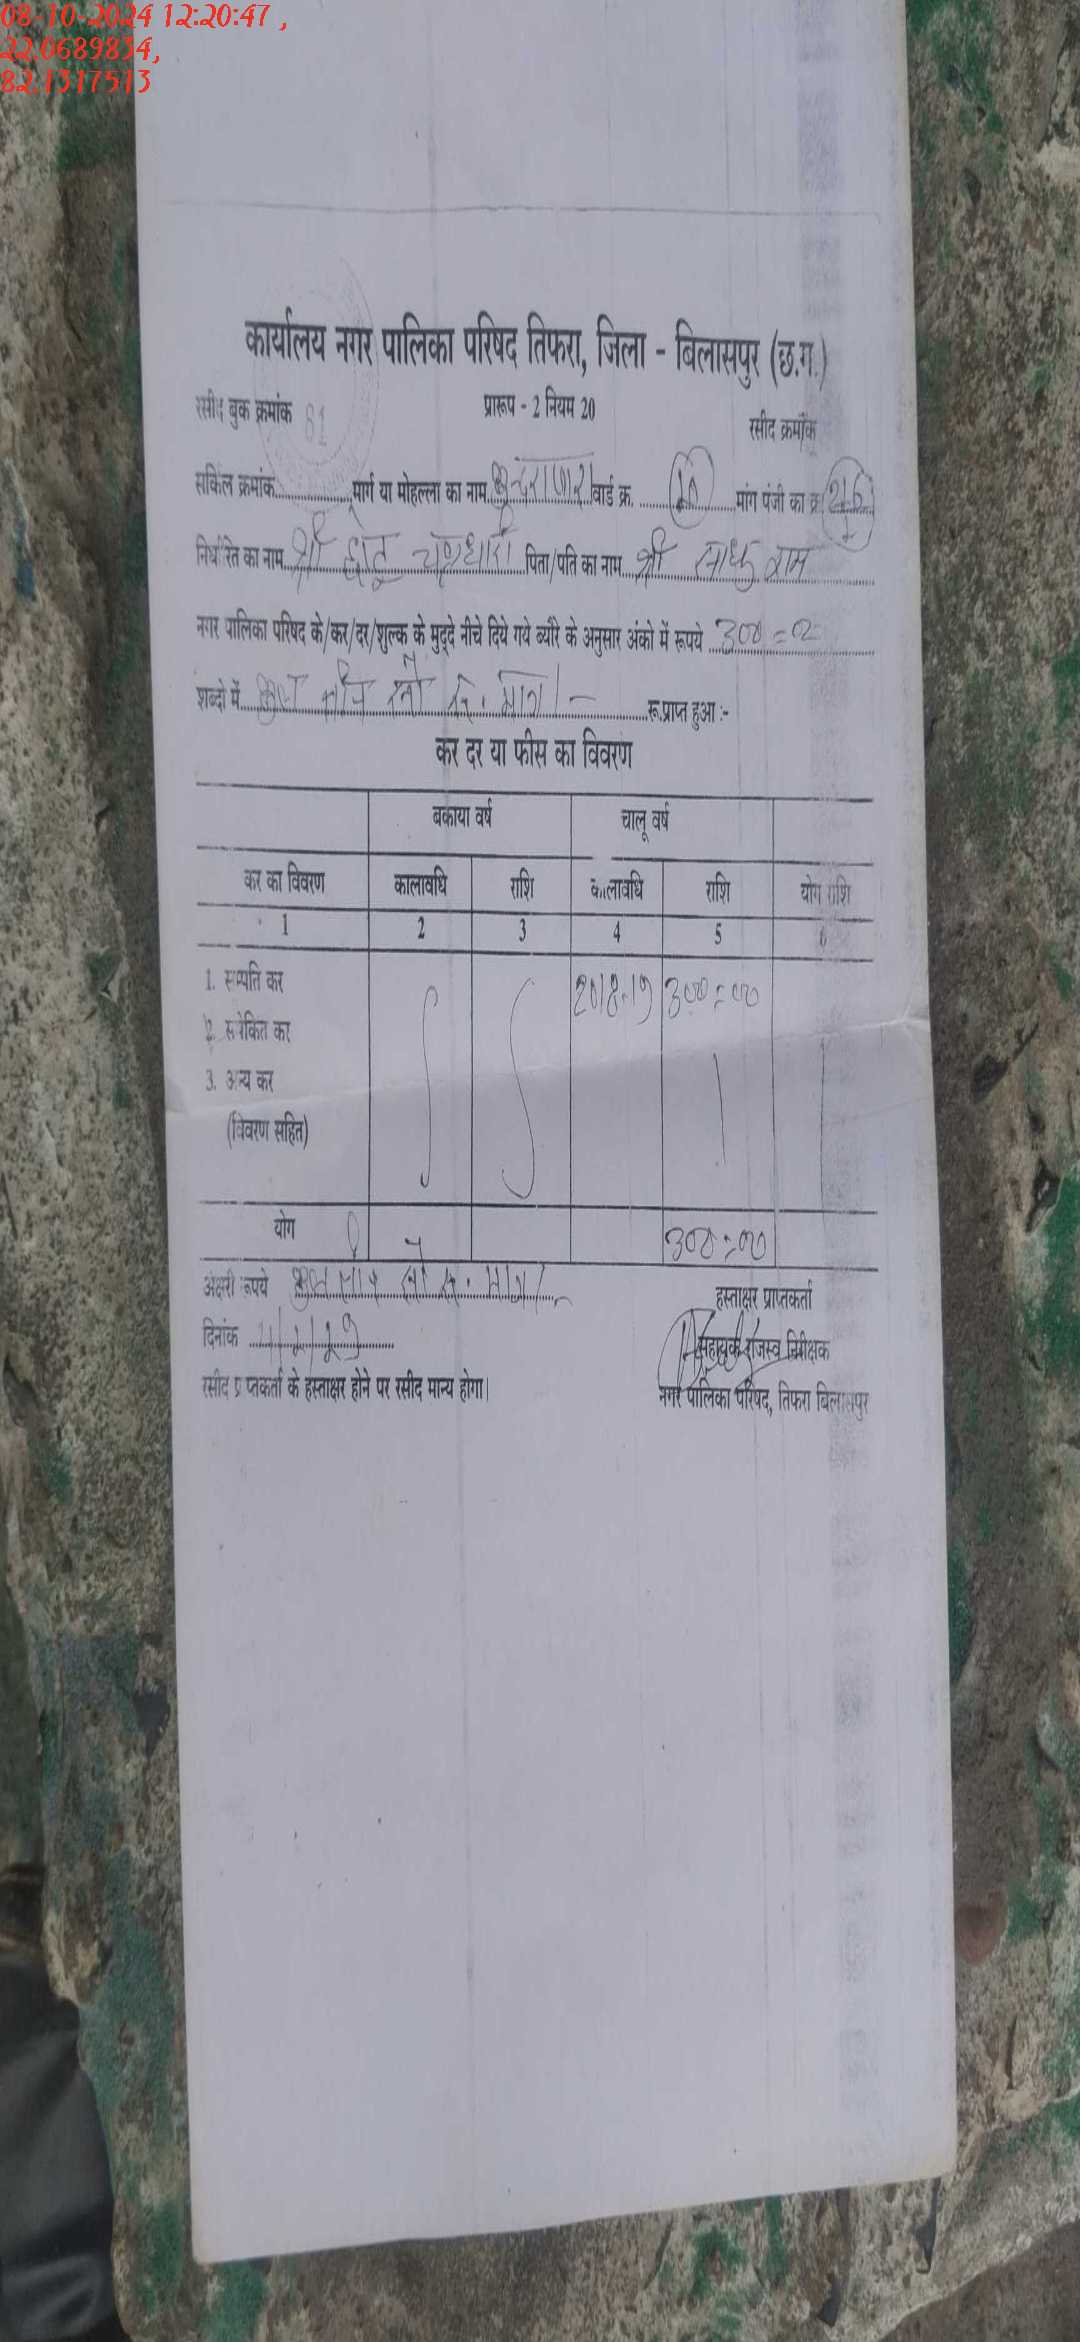 08-10-2024 12:20:47 ,
22.0689834,
82.1317513
कार्यालय नगर पालिका परिषद तिफरा, जिला - बिलासपुर (छ.ग.)
रसीद बुक क्रमांक 61 प्रारूप - 2 नियम 20 रसीद क्रमाँक
सर्किल क्रमांक.................मार्ग या मोहल्ला का नाम वार्ड क्र. 10 मांग पंजी का क्र.
निर्धारित का नाम श्री छोटू पिता/पति का नाम श्री साधु राम
नगर पालिका परिषद के/कर/दर/शुल्क के मुद्दे नीचे दिये गये ब्यौरे के अनुसार अंको में रूपये 300=00
शब्दो में कुल तीन सौ रू. मात्र/- रू.प्राप्त हुआ :-
कर दर या फीस का विवरण
बकाया वर्ष चालू वर्ष
कर का विवरण कालावधि राशि कालावधि राशि योग राशि
1 2 3 4 5 6
1. सम्पति कर 2018-19 300=00
2. समेकित कर
3. अन्य कर
(विवरण सहित)
योग 300=00
अक्षरी रूपये कुल तीन सौ रू. मात्र/-
हस्ताक्षर प्राप्तकर्ता
दिनांक
सहायक राजस्व निरीक्षक
रसीद प्राप्तकर्ता के हस्ताक्षर होने पर रसीद मान्य होगा।
नगर पालिका परिषद, तिफरा बिलासपुर